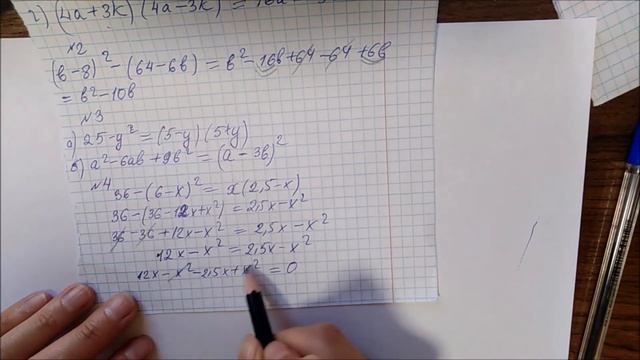 2) (4a+3k)(4a-3k) = 16a
№2
(b-8)² - (64-6b) = b² - 16b + 64 - 64 + 6b
= b² - 10b
№3
а) 25 - y² = (5-y)(5+y)
б) a² - 6ab + 9b² = (a - 3b)²
№4
36 - (6-x)² = x(2,5-x)
36 - (36 - 12x + x²) = 2,5x - x²
36 - 36 + 12x - x² = 2,5x - x²
12x - x² = 2,5x - x²
12x - x² - 2,5x + x² = 0